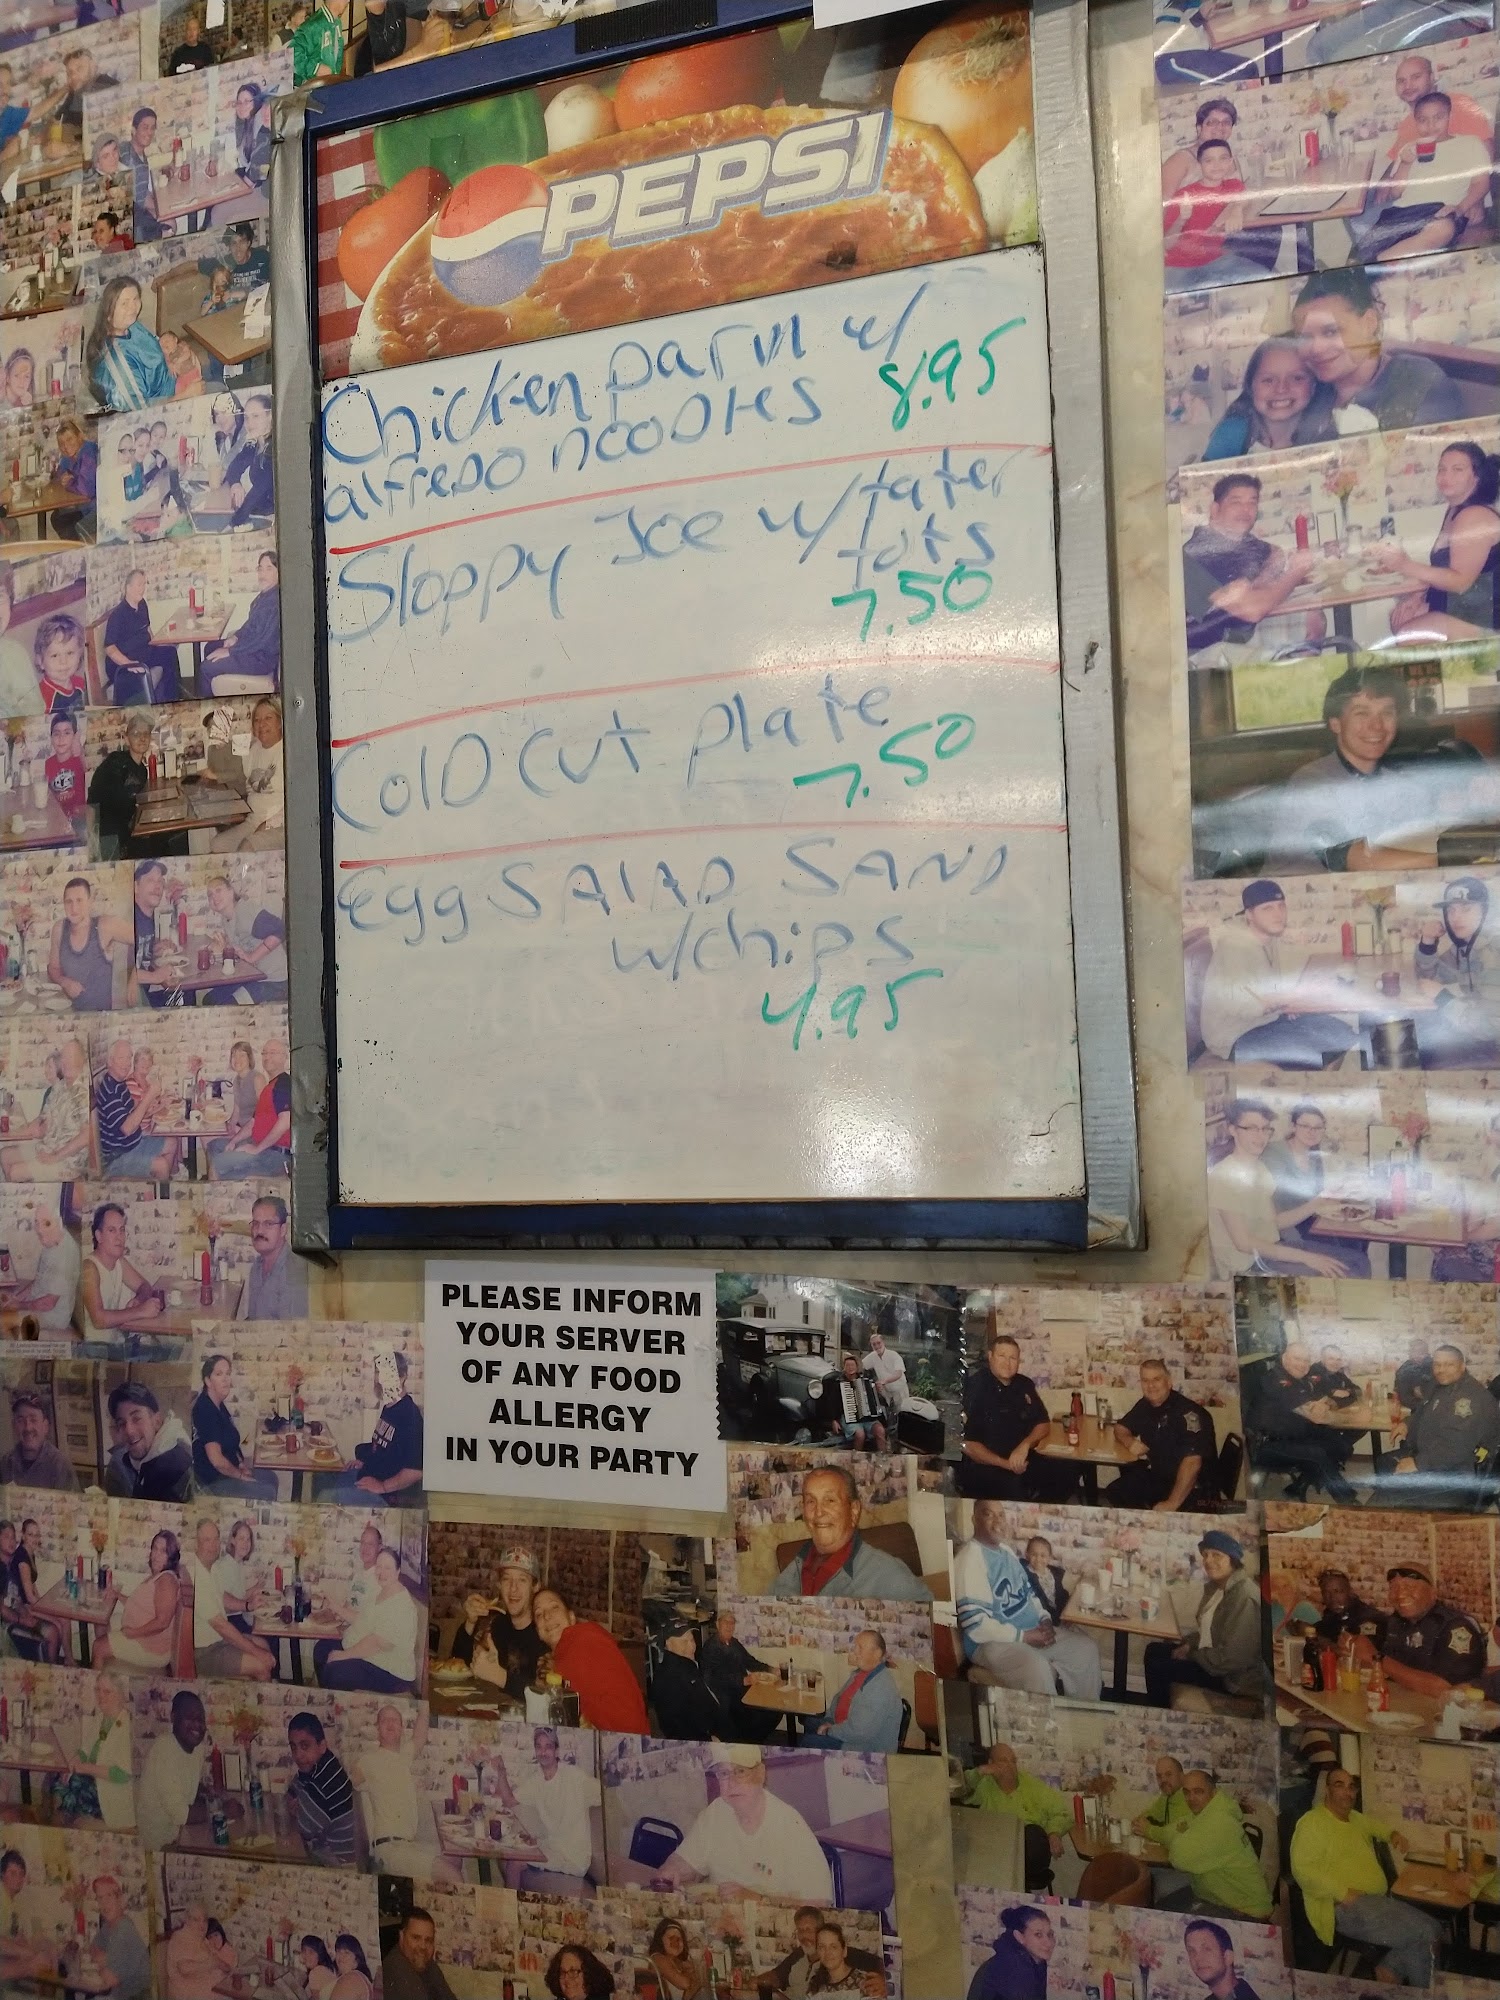 PEPSI
Chicken parm w/
alfredo noodles 8.95
Sloppy Joe w/tater
tots
7.50
Cold cut plate
7.50
Egg SALAD SAND
w/chips
4.95
PLEASE INFORM
YOUR SERVER
OF ANY FOOD
ALLERGY
IN YOUR PARTY